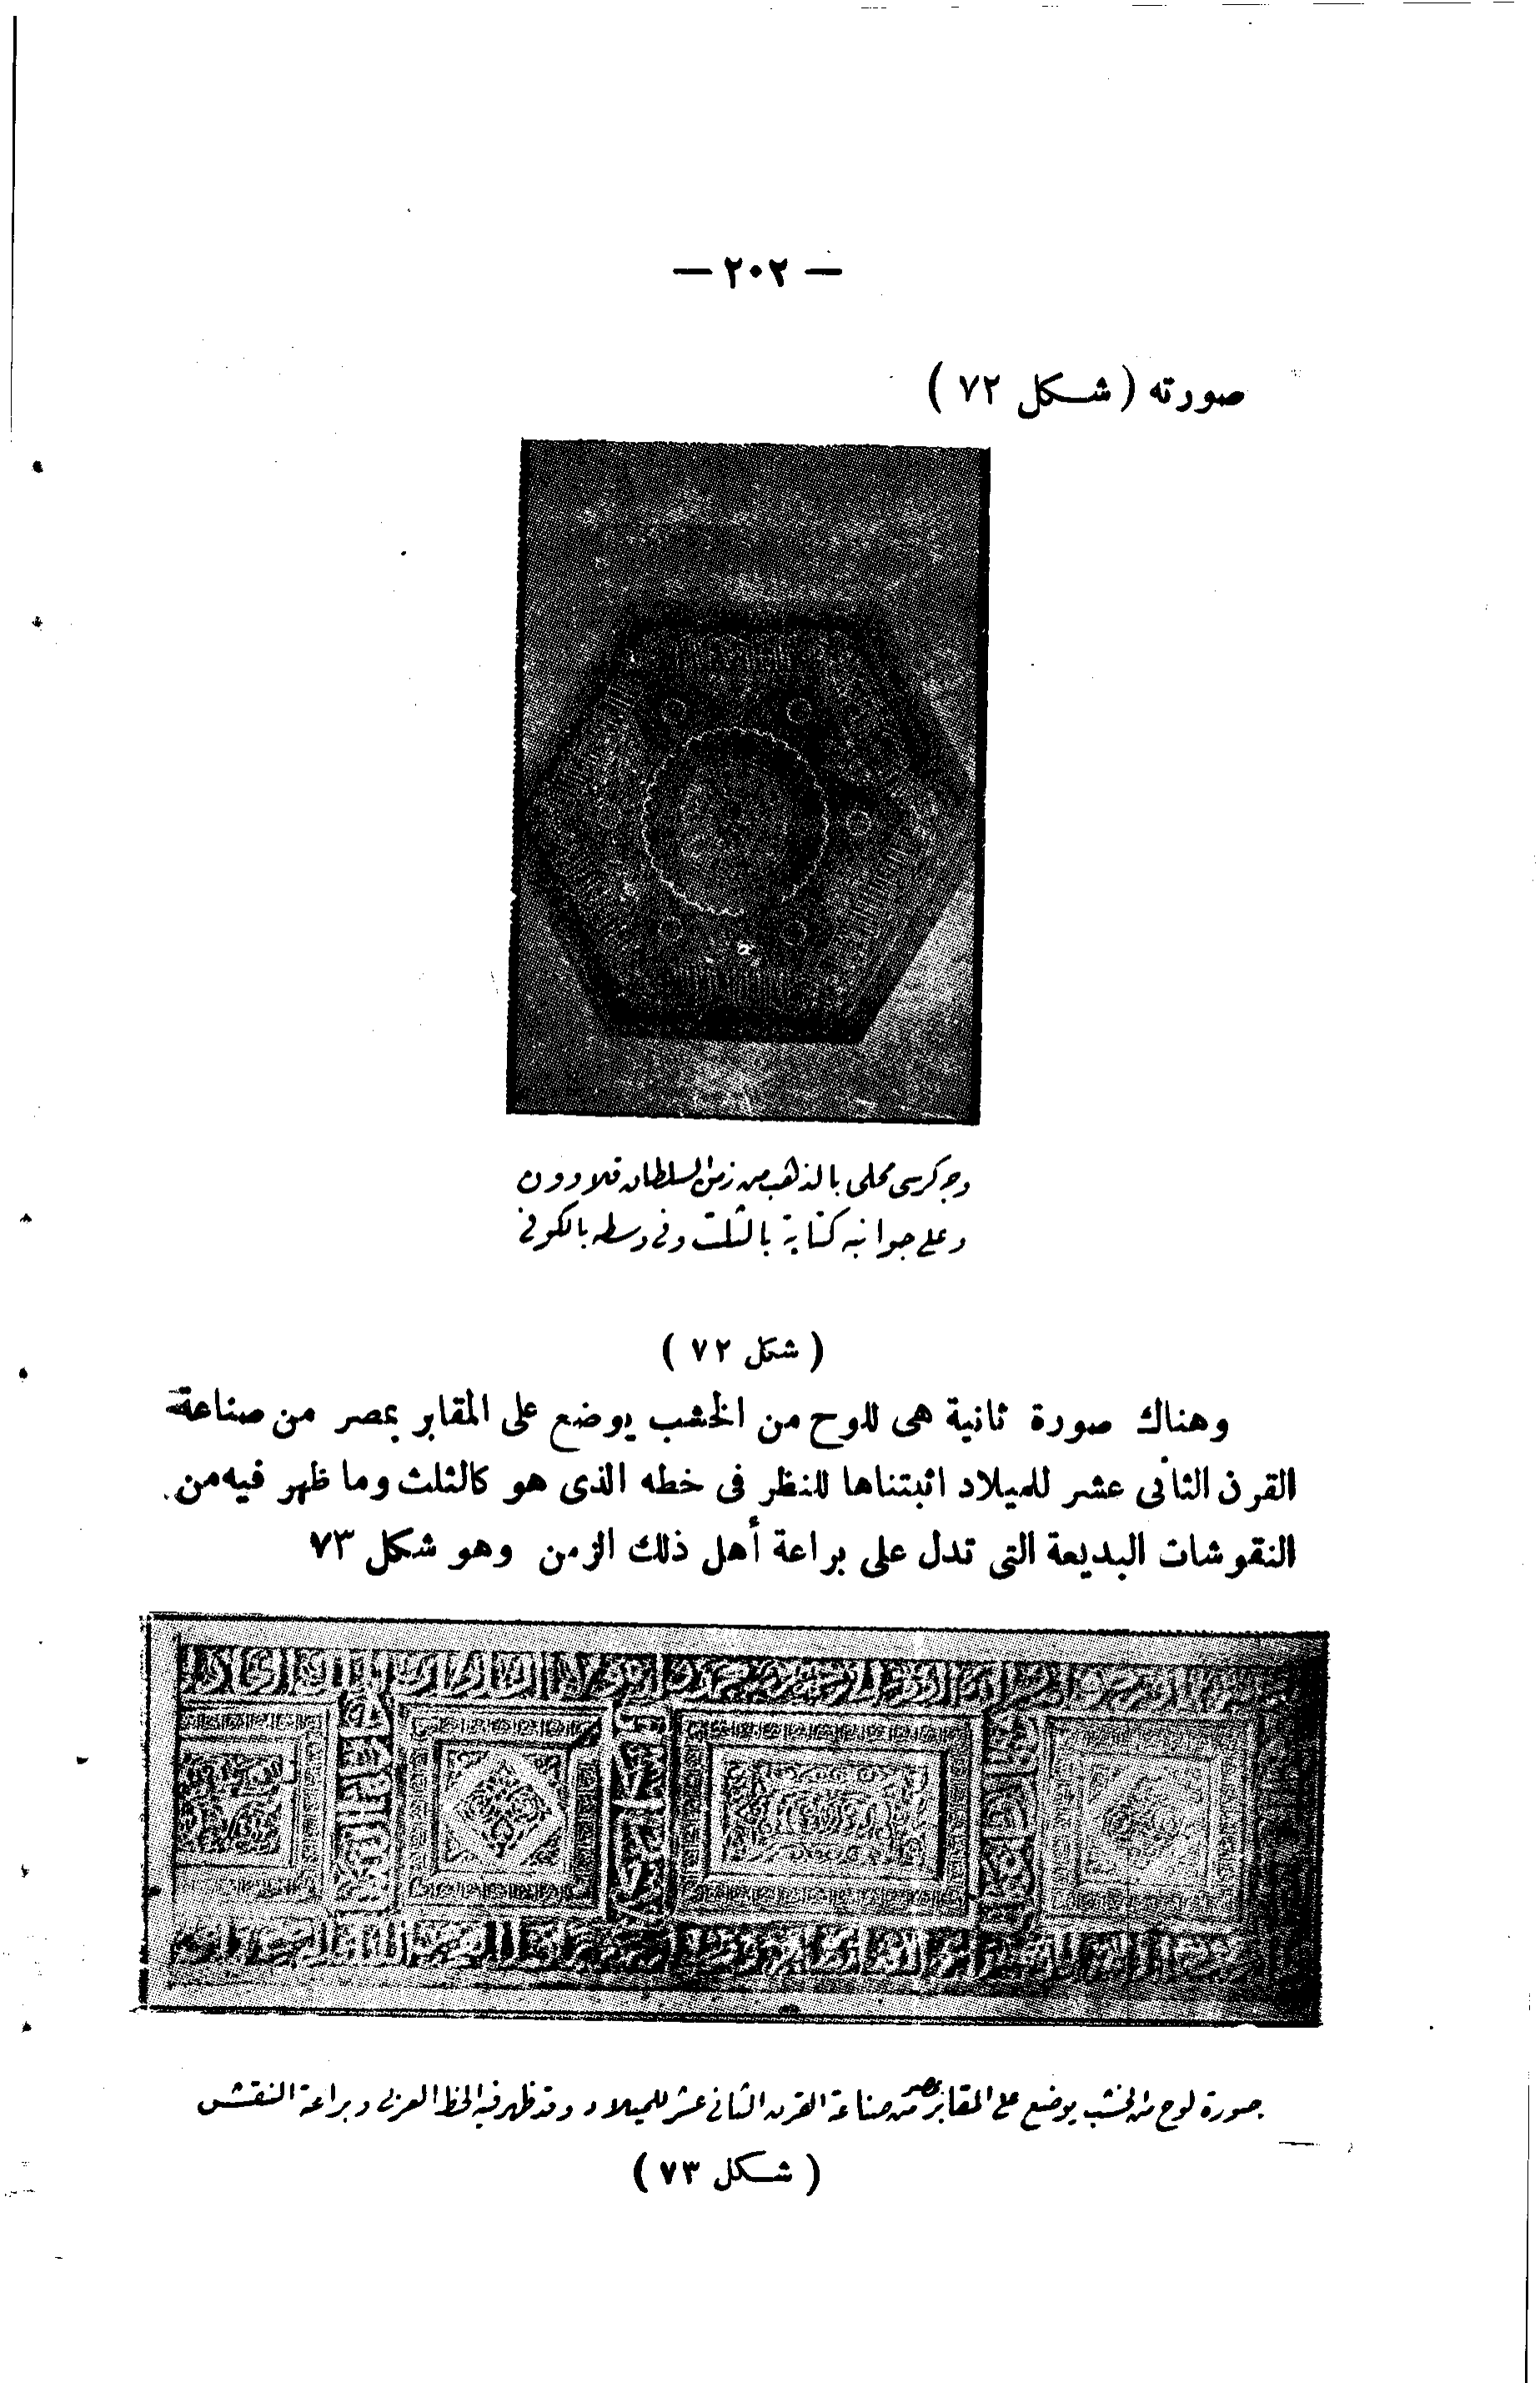 — ٢٠٢ —
صورته ( شكل ٧٢ )
وجه كرسى محلى بالذهب من زمن السلطان قلاوون
وعلى جوانبه كتابة بالثلث وفى وسطه بالكوفى
( شكل ٧٢ )
وهناك صورة ثانية هى للوح من الخشب يوضع على المقابر بمصر من صناعة
القرن الثانى عشر للميلاد اثبتناها للنظر فى خطه الذى هو كالثلث وما ظهر فيه من
النقوشات البديعة التى تدل على براعة أهل ذلك الزمن وهو شكل ٧٣
صورة لوح من الخشب يوضع على المقابر بمصر من صناعة القرن الثانى عشر للميلاد وقد ظهر فيه الخط العربى وبراعة النقش
( شكل ٧٣ )